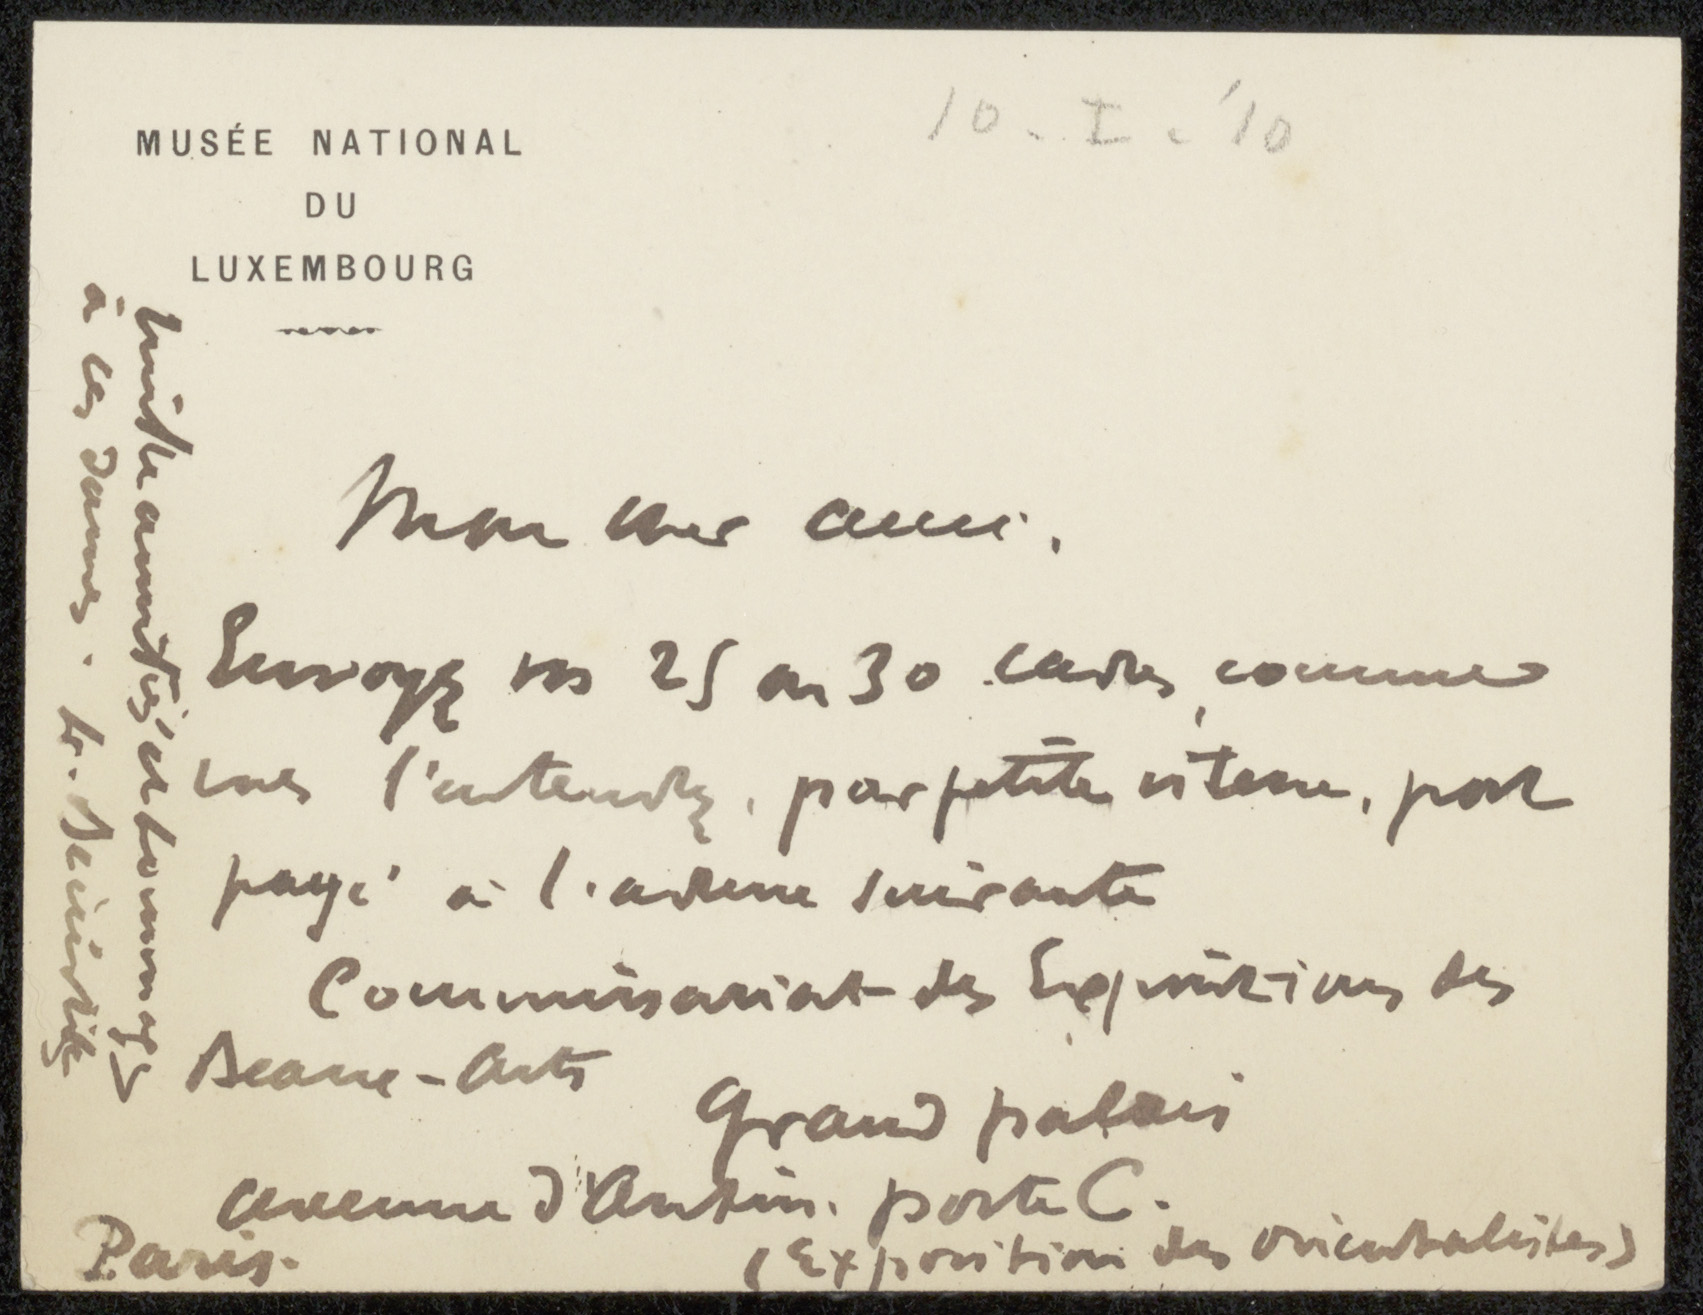 MUSÉE NATIONAL
DU
LUXEMBOURG
10. I. '10
Mon cher ami.
Envoyez vos 25 ou 30 cadres, comme
vous l'entendez, par petite vitesse, port
payé à l'adresse suivante
Commissariat des Expositions des
Beaux-Arts
Grand palais
avenue d'Antin. porte C.
Paris.
(Exposition des orientalistes)
amitiés et hommages
à ces dames. L. Bénédite